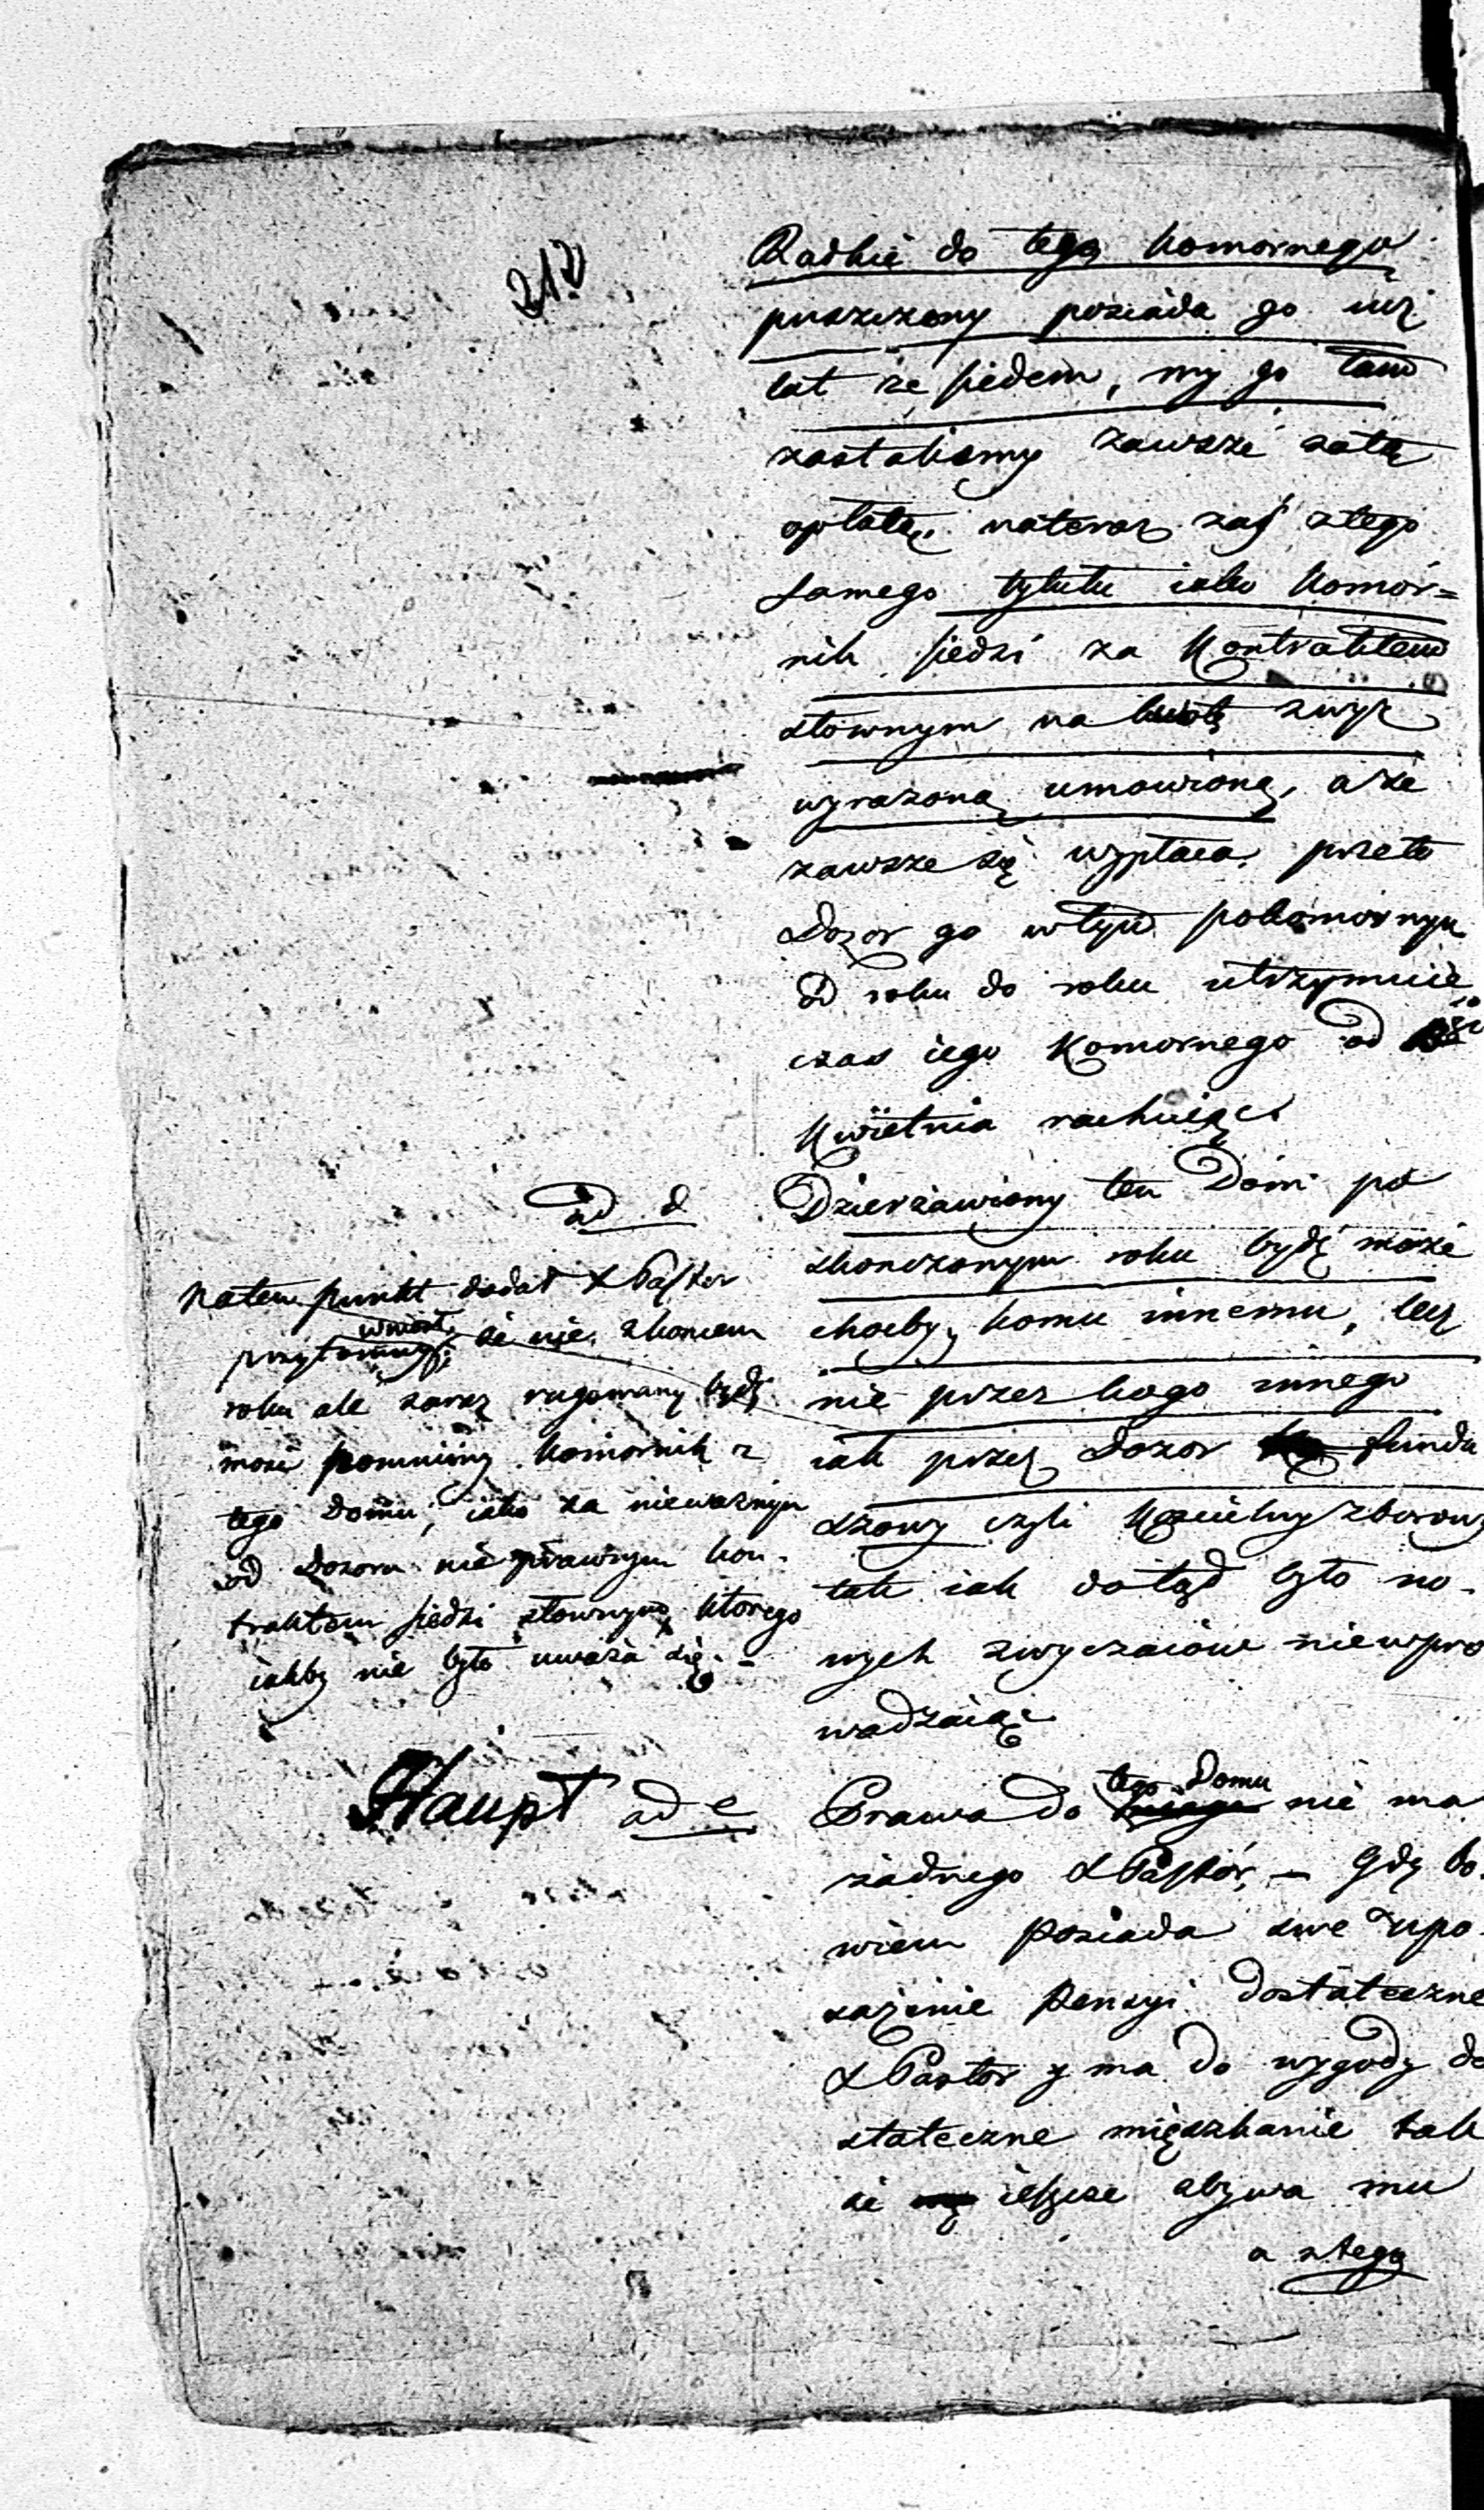 212
Radkie do tego komornego
puszczony posiada go iuż
lat ze siedem, my go tam
zastalismy zawsze zatę
opłatę, nateraz zaś ztego
samego tytułu iako komor=
nik siedzi za Kontraktem
słownym na kwotę zwyż
wyrazoną umowioną, a że
zawsze się wypłaca, przeto
Dozor go wtym pokomornym
od roku do roku utrzymuie
czas iego Komornego od
Kwietnia rachuiąc
ad d
Dzierżawiony ten Dom po
skonczonym roku bydź może
choćby komu innemu, lecz
nie przez kogo innego
iak przez Dozor fundu
szowy czyli Koscielny zborowy
tak iak dotąd było no-
wych zwyczaiow niewpro
wadzaiąc
Naten punkt dodał X Pastor
wniosł
przytomny; że nie z koncem
roku ale zaraz rugowany bydź
może pomniony komornik z
tego Domu, iako za nieważnym
od Dozoru nie prawnym kon-
traktem siedzi słownym, ktorego
iakby nie było uważa się. -
Haupt
ad e
tego Domu
Prawa do nie ma
żadnego X Pastor, - Gdy bo-
wiem Posiada swe upo-
sażenie Pensyi dostateczne
X Pastor y ma do wygody do
stateczne mięszkanie tak
że ieszcze zbywa mu
a ztego